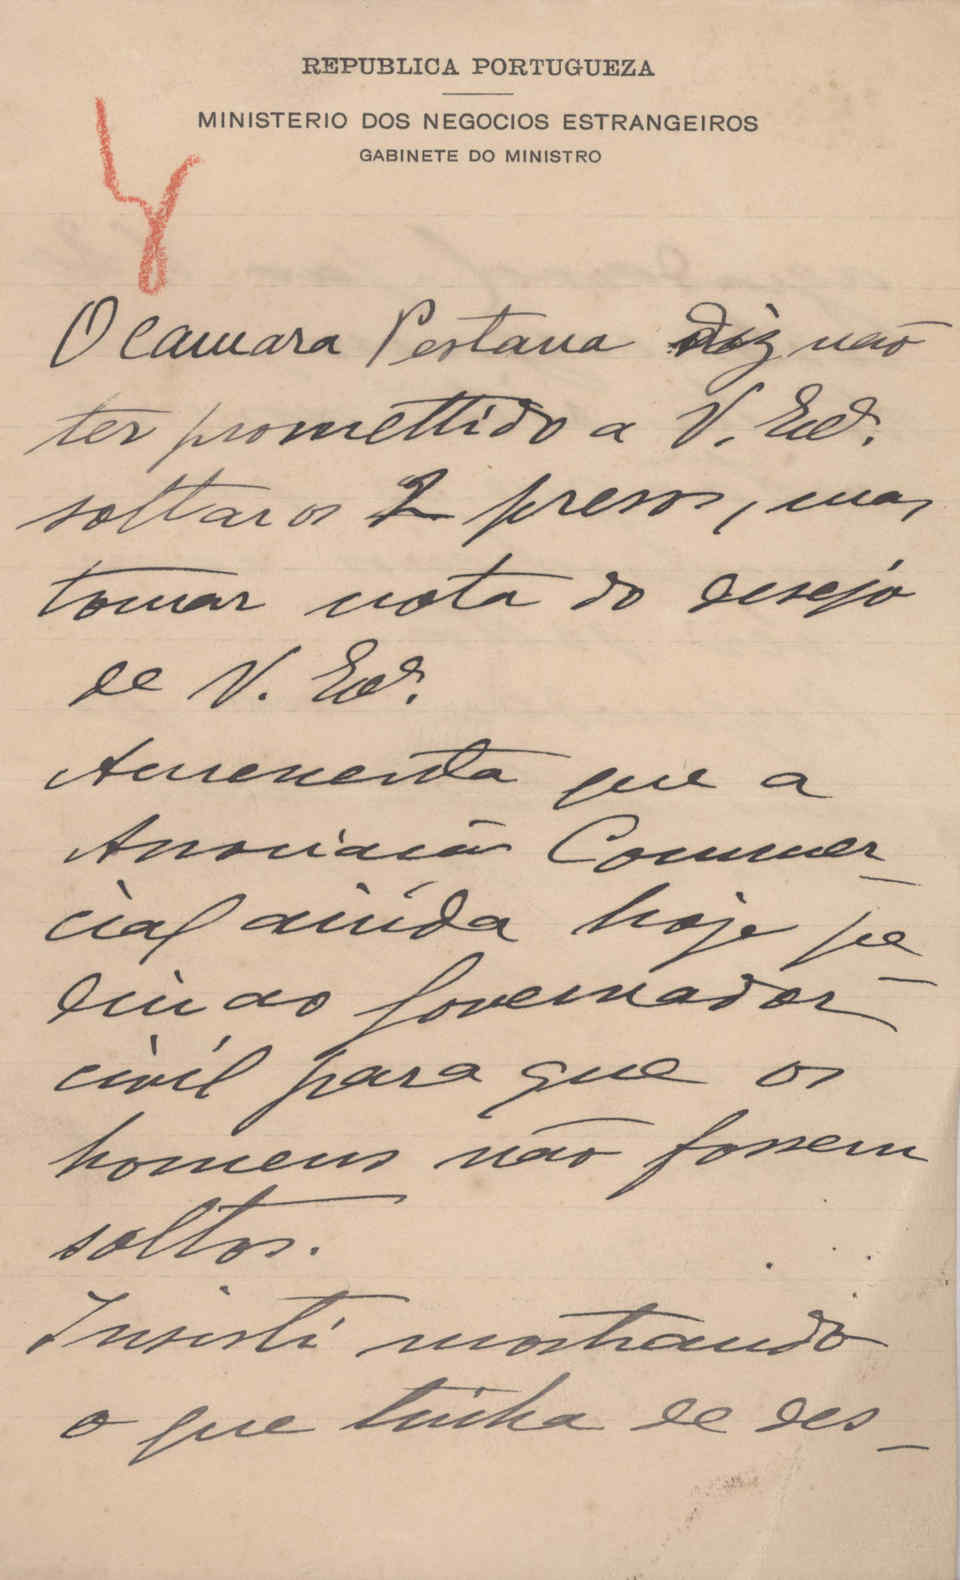 REPUBLICA PORTUGUEZA
MINISTERIO DOS NEGOCIOS ESTRANGEIROS
GABINETE DO MINISTRO
O Camara Pestana diz não
ter promettido a V. Exª.
soltar os 2 presos, mas
tomar nota do desejo
de V. Exª.
Accrescenta que a
Associacão Commer-
cial ainda hoje pe-
diu ao Governador
civil para que os
homens não fossem
soltos.
Insisti mostrando
o que tinha de des-